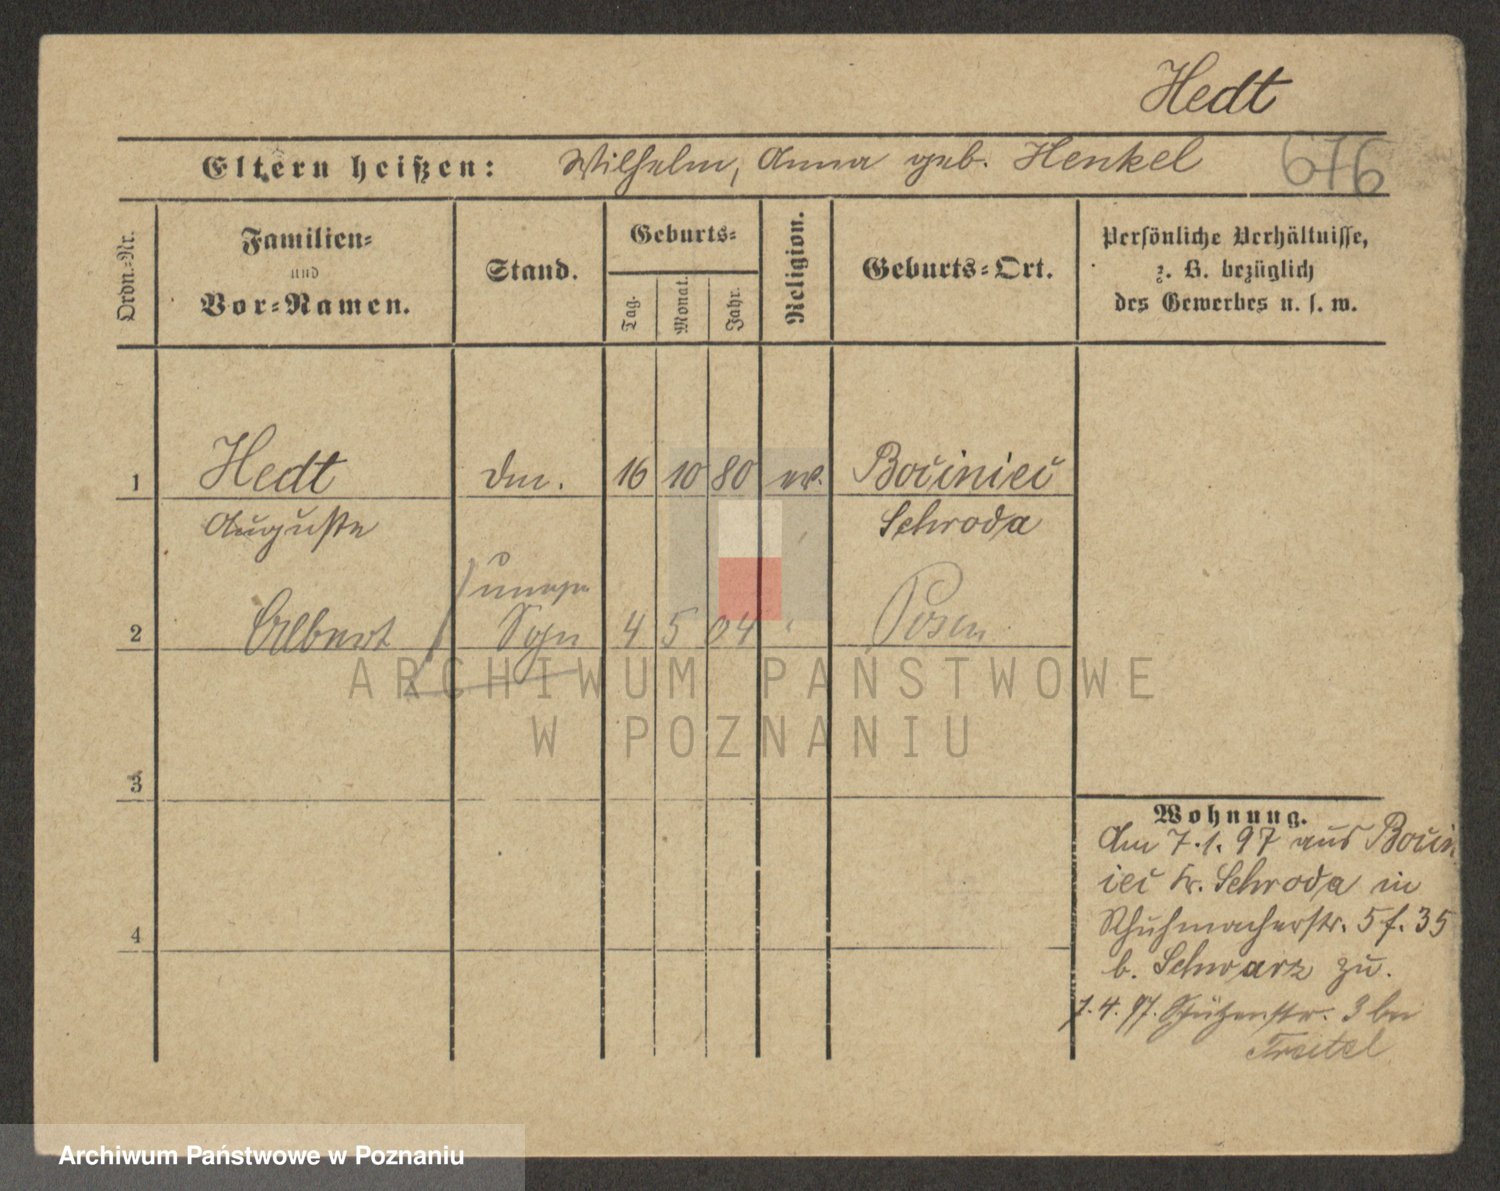 Hedt
Eltern heißen: Wilhelm, Anna geb. Henkel
676
Ordn.-Nr.
Familien-
und
Vor-Namen.
Stand.
Geburts-
Tag.
Monat.
Jahr.
Religion.
Geburts-Ort.
Persönliche Verhältnisse,
z. B. bezüglich
des Gewerbes u. s. w.
1 Hedt Dm. 16 10 80 ev.
Auguste Schroda
2 Albert Sohn 4 5 04 Posen
3
4
Wohnung.
Am 7.1.97 aus
Kr. Schroda in
Schuhmacherstr. 5 f. 35
b. Schwarz zu.
7.4.97. Schützenstr. 3 bei
ARCHIWUM PAŃSTWOWE
W POZNANIU
Archiwum Państwowe w Poznaniu